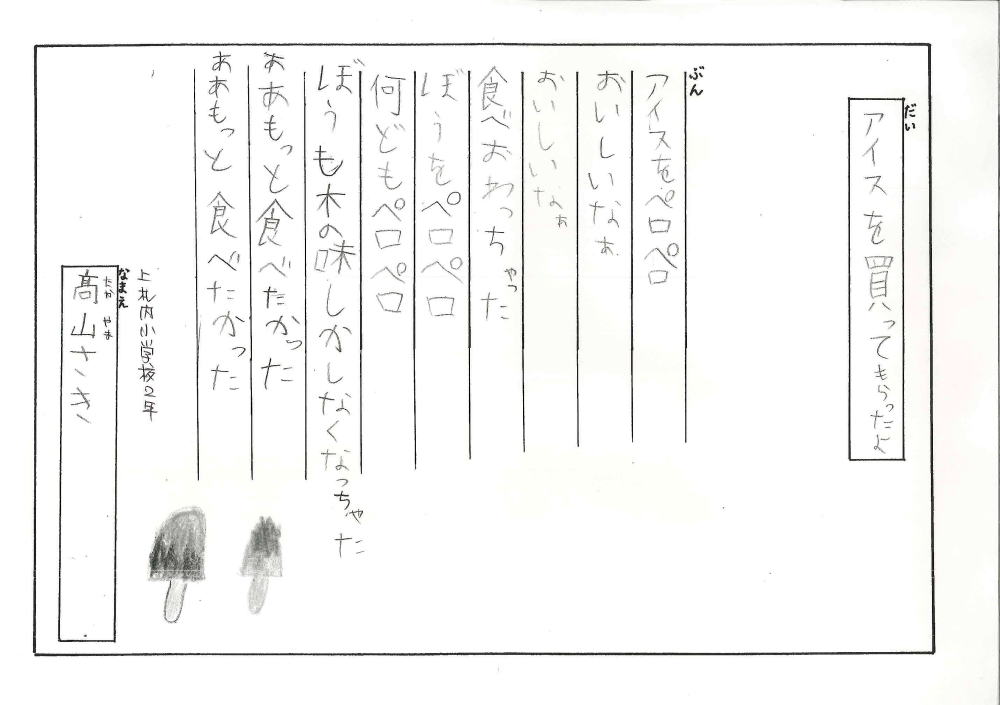 だい
アイスを買ってもらったよ
ぶん
アイスをペロペロ
おいしいなぁ
おいしいなぁ
食べおわっちゃった
ぼうをペロペロ
何どもペロペロ
ぼうも木の味しかしなくなっちゃた
ああもっと食べたかった
ああもっと食べたかった
上札内小学校2年
なまえ
たかやま
髙山さき